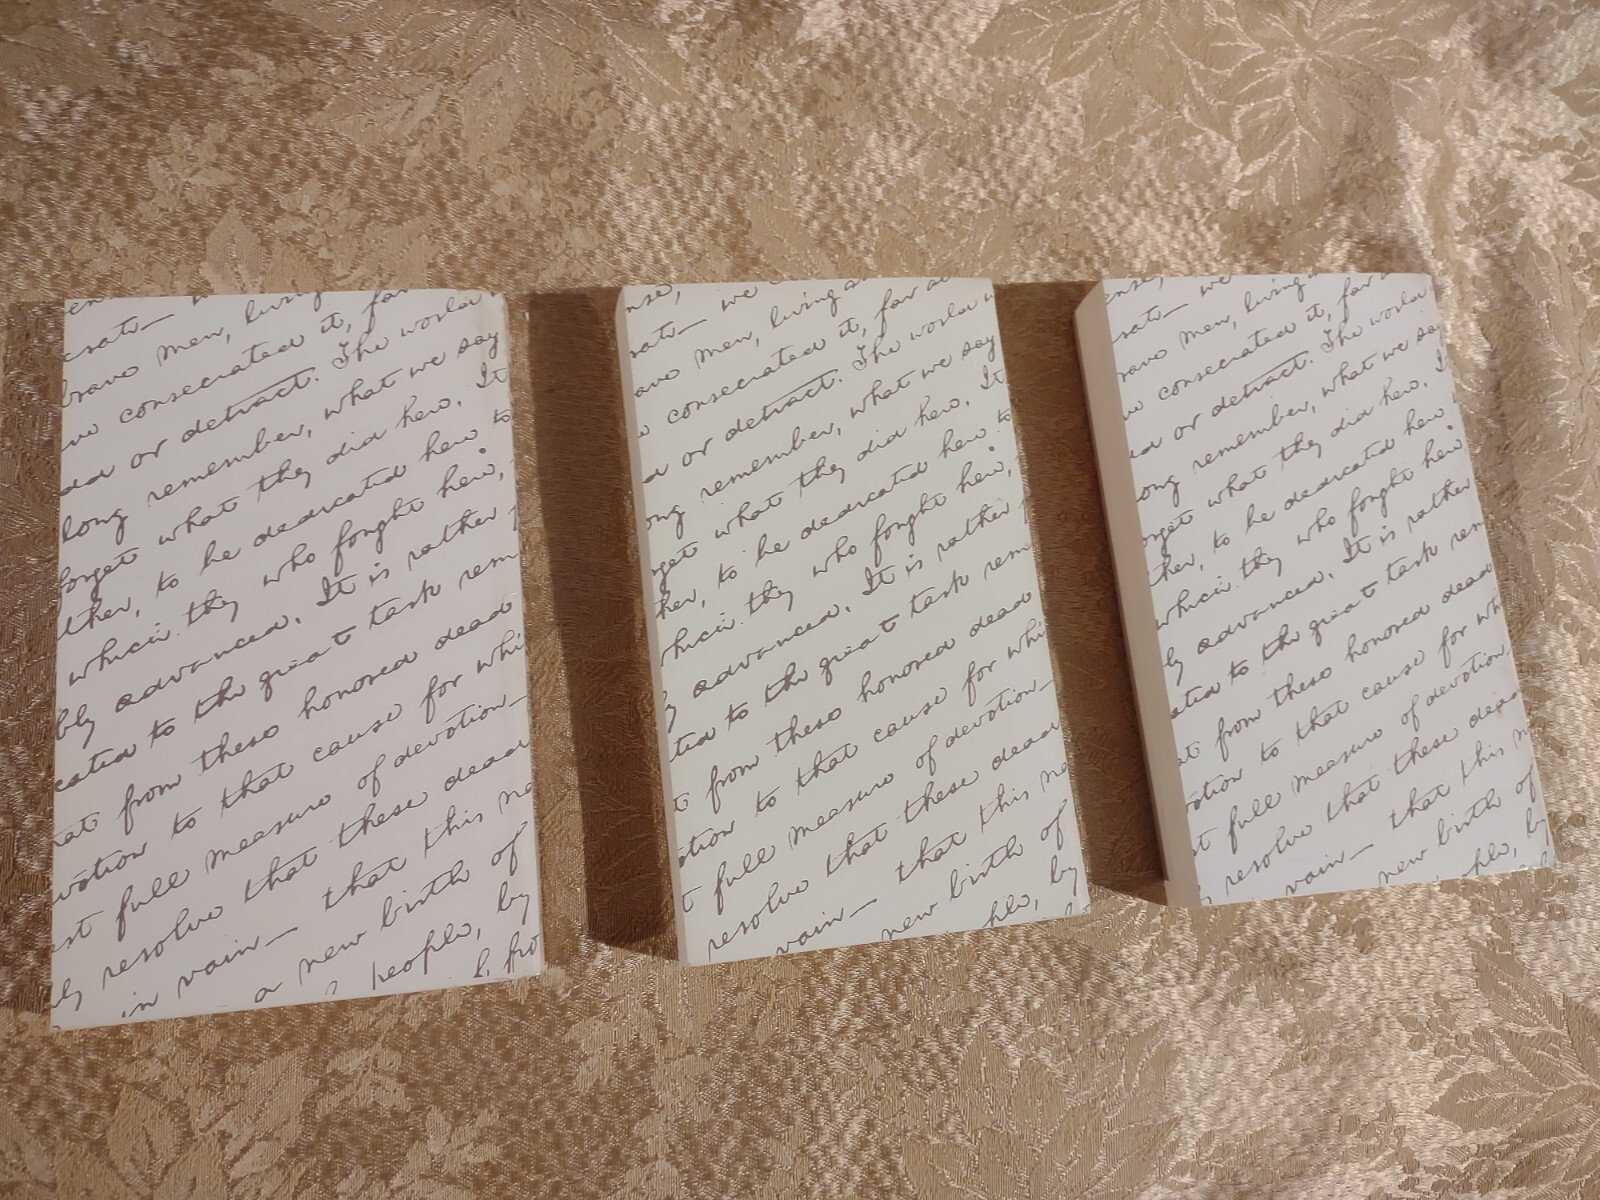 en
crate— we
brave men, living
consecrated it, far
add or detract. The world
long remember, what we say
forget what they did here. It
ther, to be dedicated here to
which they who fought here,
bly advanced. It is rather
cated to the great task rem
hat from these honored dead
votion to that cause for whi
st full measure of devotion—
ly resolve that these dead
in vain— that this na
a new birth of
people, by
fro
nse,
rate— we
ave men, living a
consecrated it, far a
d or detract. The world
ong remember, what we say
rget what they did here. It
her, to be dedicated here to
which they who fought here,
y advanced. It is rather
ted to the great task rem
t from these honored dead
otion to that cause for whi
t full measure of devotion—
resolve that these dead
vain— that this na
new birth of
ple, by
ense,
rate— we
rave men, living
consecrated it, far a
d or detract. The world
ong remember, what we say
orget what they did here. It
ther, to be dedicated here to
which they who fought here
ly advanced. It is rather
ated to the great task rem
at from these honored dead
votion to that cause for wh
st full measure of devotion
resolve that these dead
vain— that this n
new birth of
ple, by